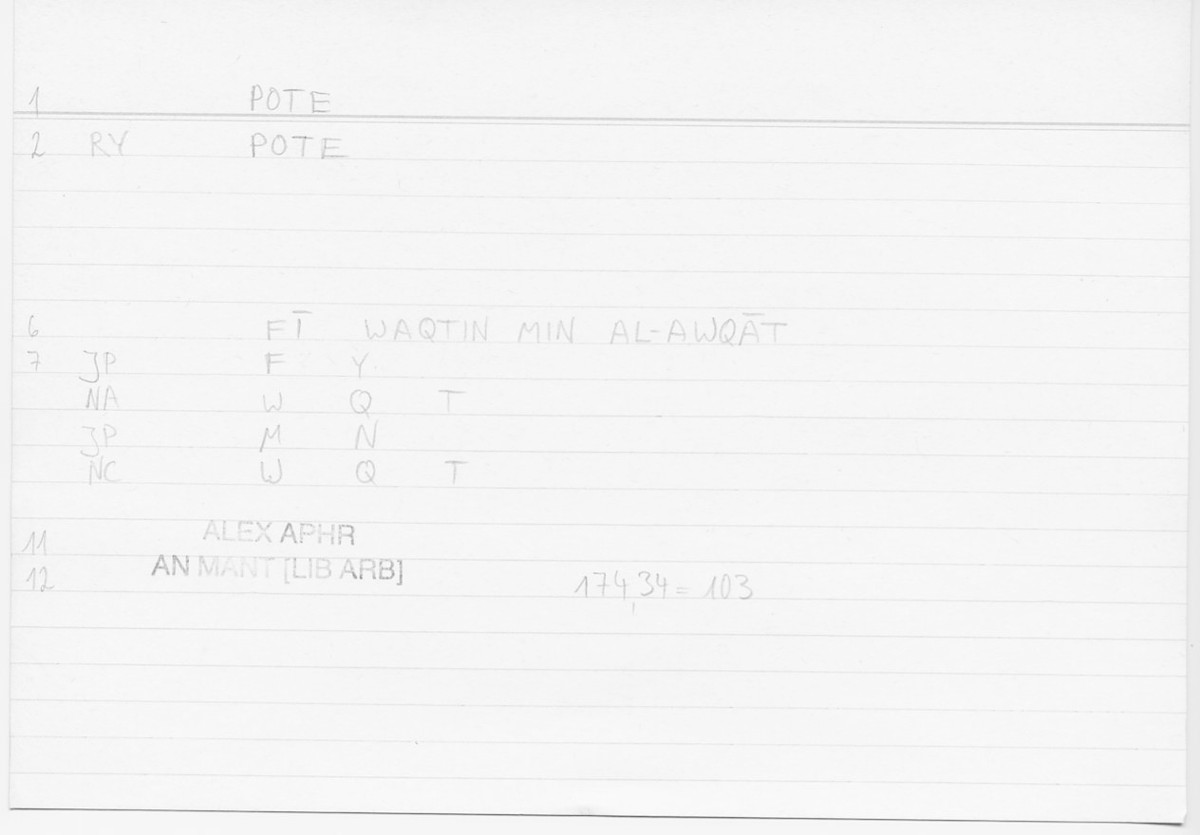 1 POTE
2 RY POTE
6 FĪ WAQTIN MIN AL-AWQĀT
7 JP F Y
NA W Q T
JP M N
NC W Q T
11 ALEX APHR
12 AN MANT [LIB ARB] 174,34 = 103